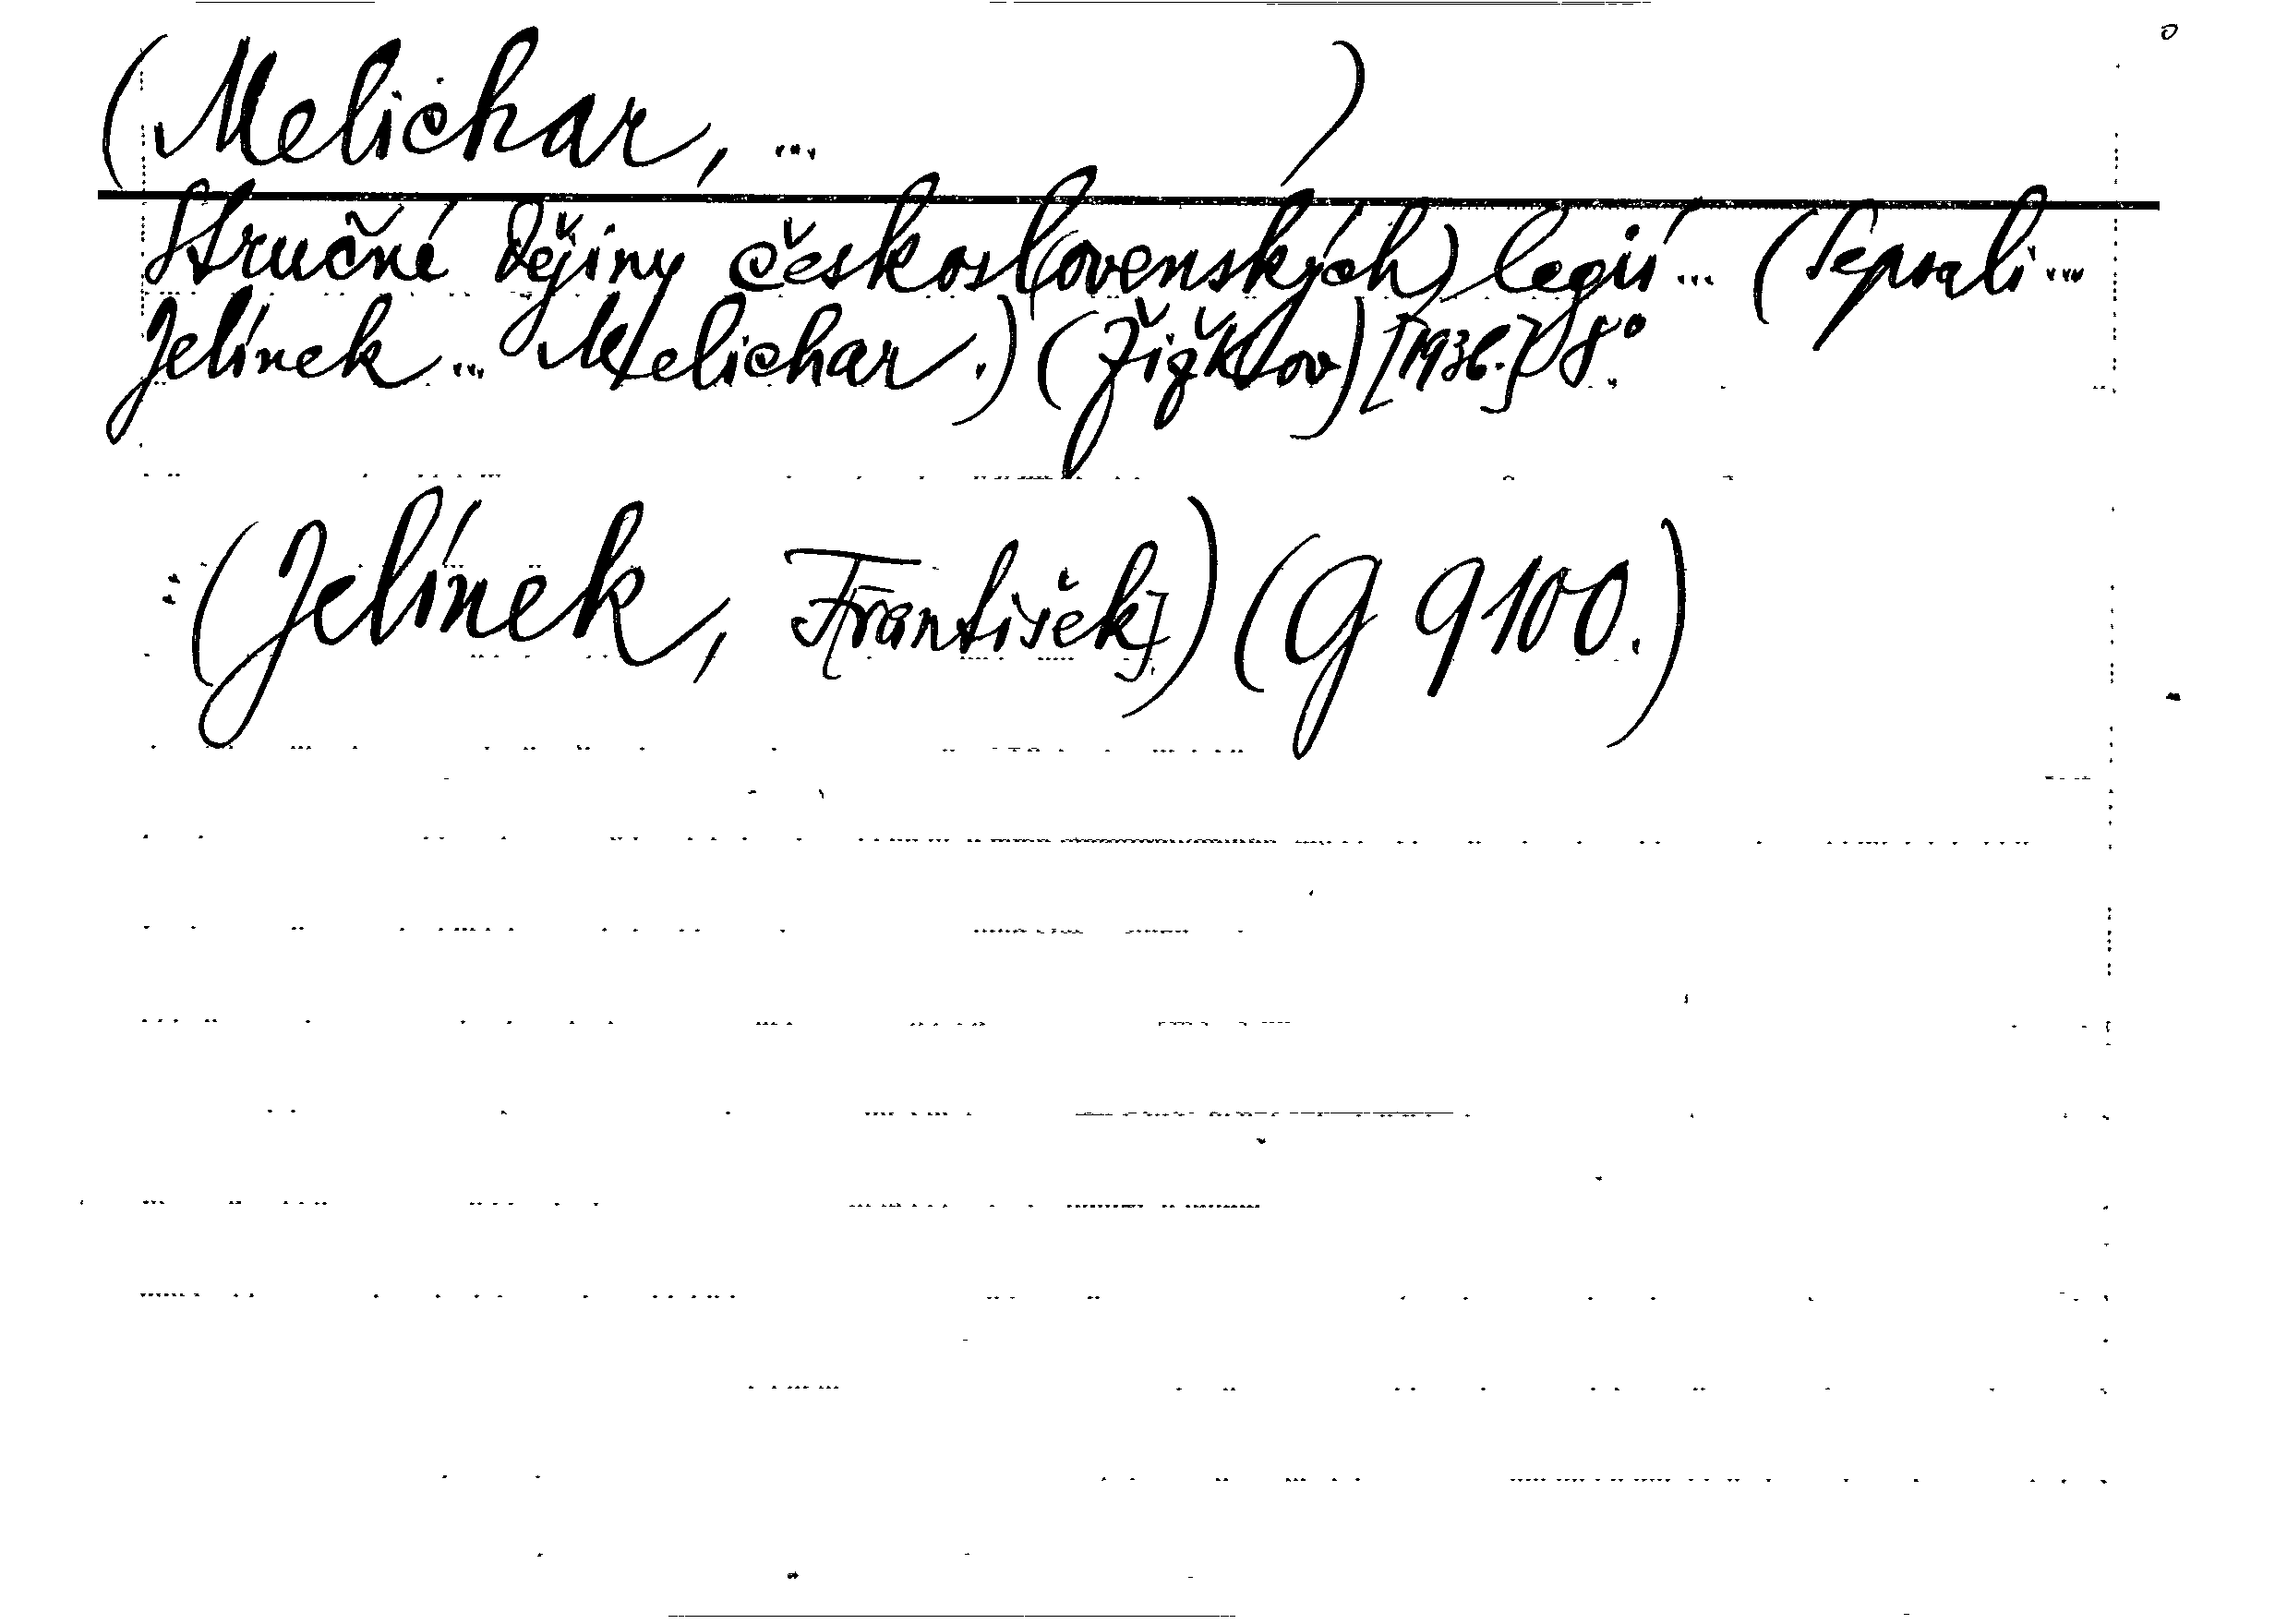 (Melichar, ... )
Stručné dějiny českosl(ovenských) legií ... (Sepsali ...
Jelínek ... Melichar.) (Žižkov) [1936.] 8°.
: (Jelínek, F[rantišek].) (G 9100.)